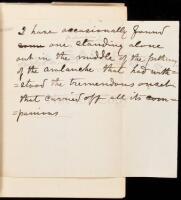 I have occasionally found
some one standing alone
out in the middle of the pathway
of the avalanche that had with=
=stood the tremendous onset
that carried off all its com=
=panions